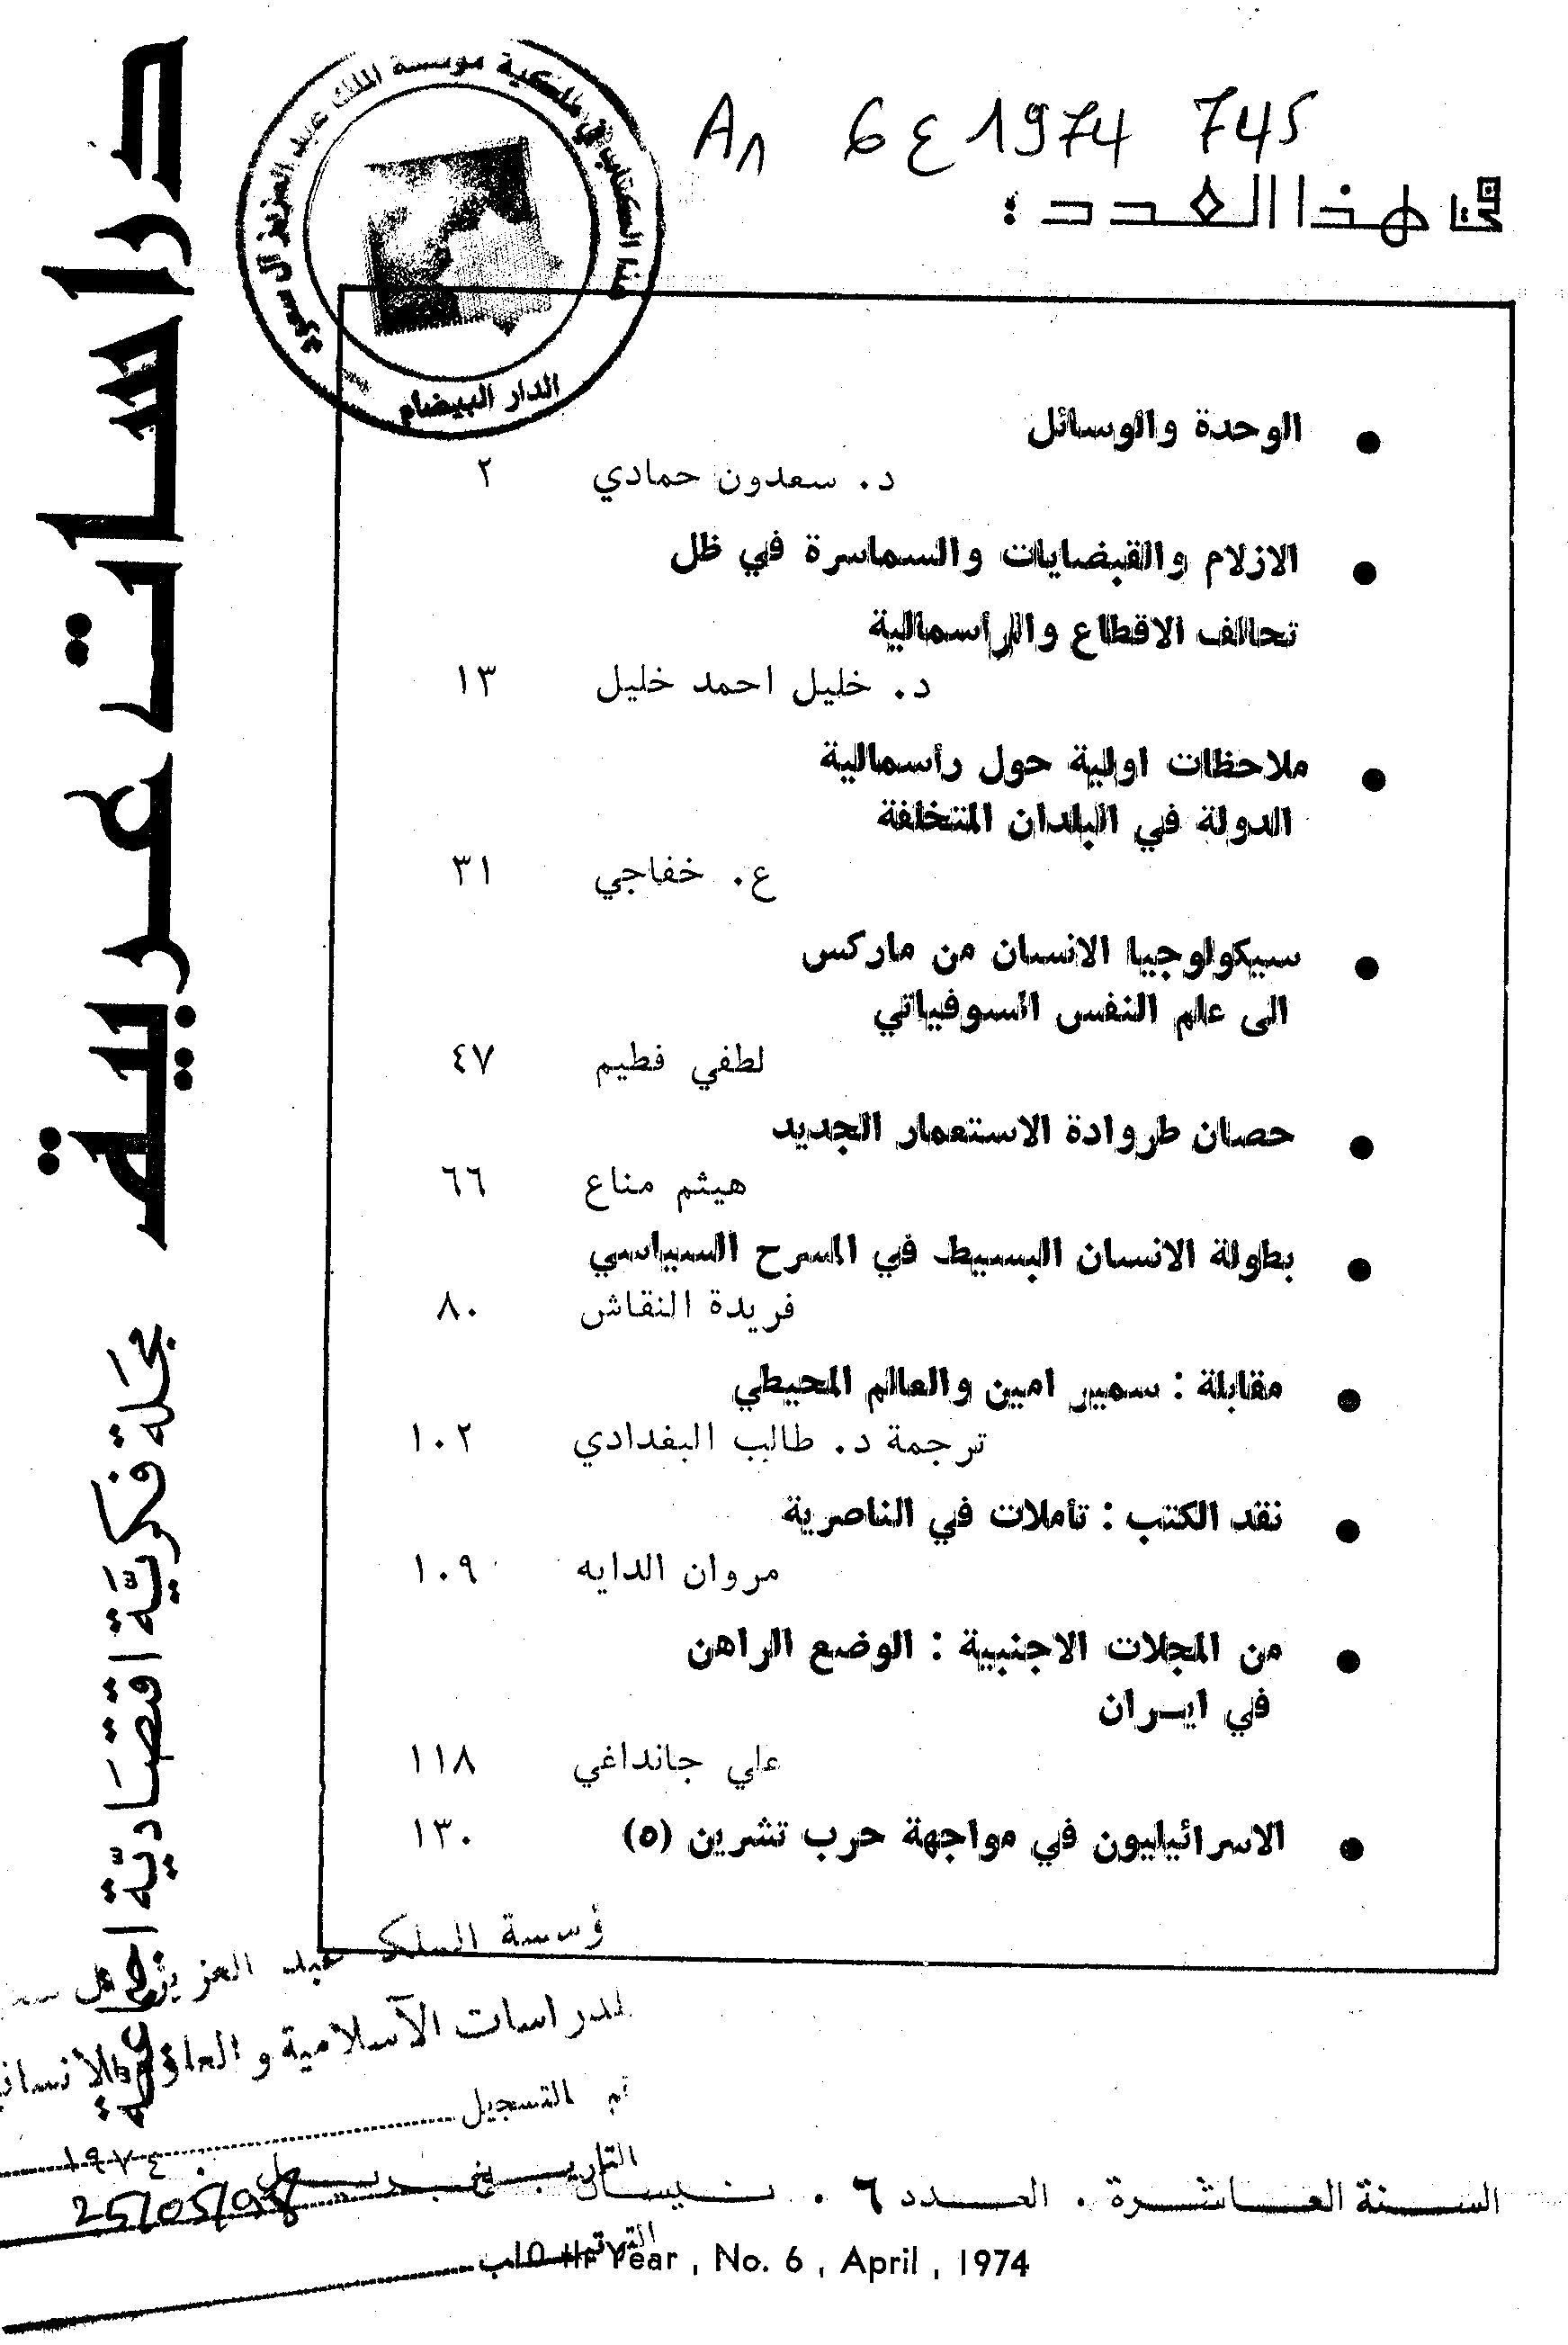 دراسات عربية
مجلة فكرية اقتصادية اجتماعية
هذا الكتاب في ملكية مؤسسة الملك عبد العزيز آل سعود
الدار البيضاء
A1 6 ع 1974 745
في هذا العدد :
● الوحدة والوسائل
د. سعدون حمادي ٢
● الازلام والقبضايات والسماسرة في ظل
تحالف الاقطاع والرأسمالية
د. خليل احمد خليل ١٣
● ملاحظات اولية حول رأسمالية
الدولة في البلدان المتخلفة
ع. خفاجي ٣١
● سيكولوجيا الانسان من ماركس
الى علم النفس السوفياتي
لطفي فطيم ٤٧
● حصان طروادة الاستعمار الجديد
هيثم مناع ٦٦
● بطولة الانسان البسيط في المسرح السياسي
فريدة النقاش ٨٠
● مقابلة : سمير امين والعالم المحيطي
ترجمة د. طالب البغدادي ١٠٢
● نقد الكتب : تأملات في الناصرية
مروان الدايه ١٠٩
● من المجلات الاجنبية : الوضع الراهن
في ايــران
علي جانداغي ١١٨
● الاسرائيليون في مواجهة حرب تشرين (٥) ١٣٠
ؤسسة الملك عبد العزيز آل سع
لدراسات الآسلامية والعلوم الانساني
م التسجيل
التاريخ 25/05/98
الترتيب
السنة العاشرة . العدد ٦ . نيسان ابريل . ١٩٧٤
10 th Year , No. 6 , April , 1974